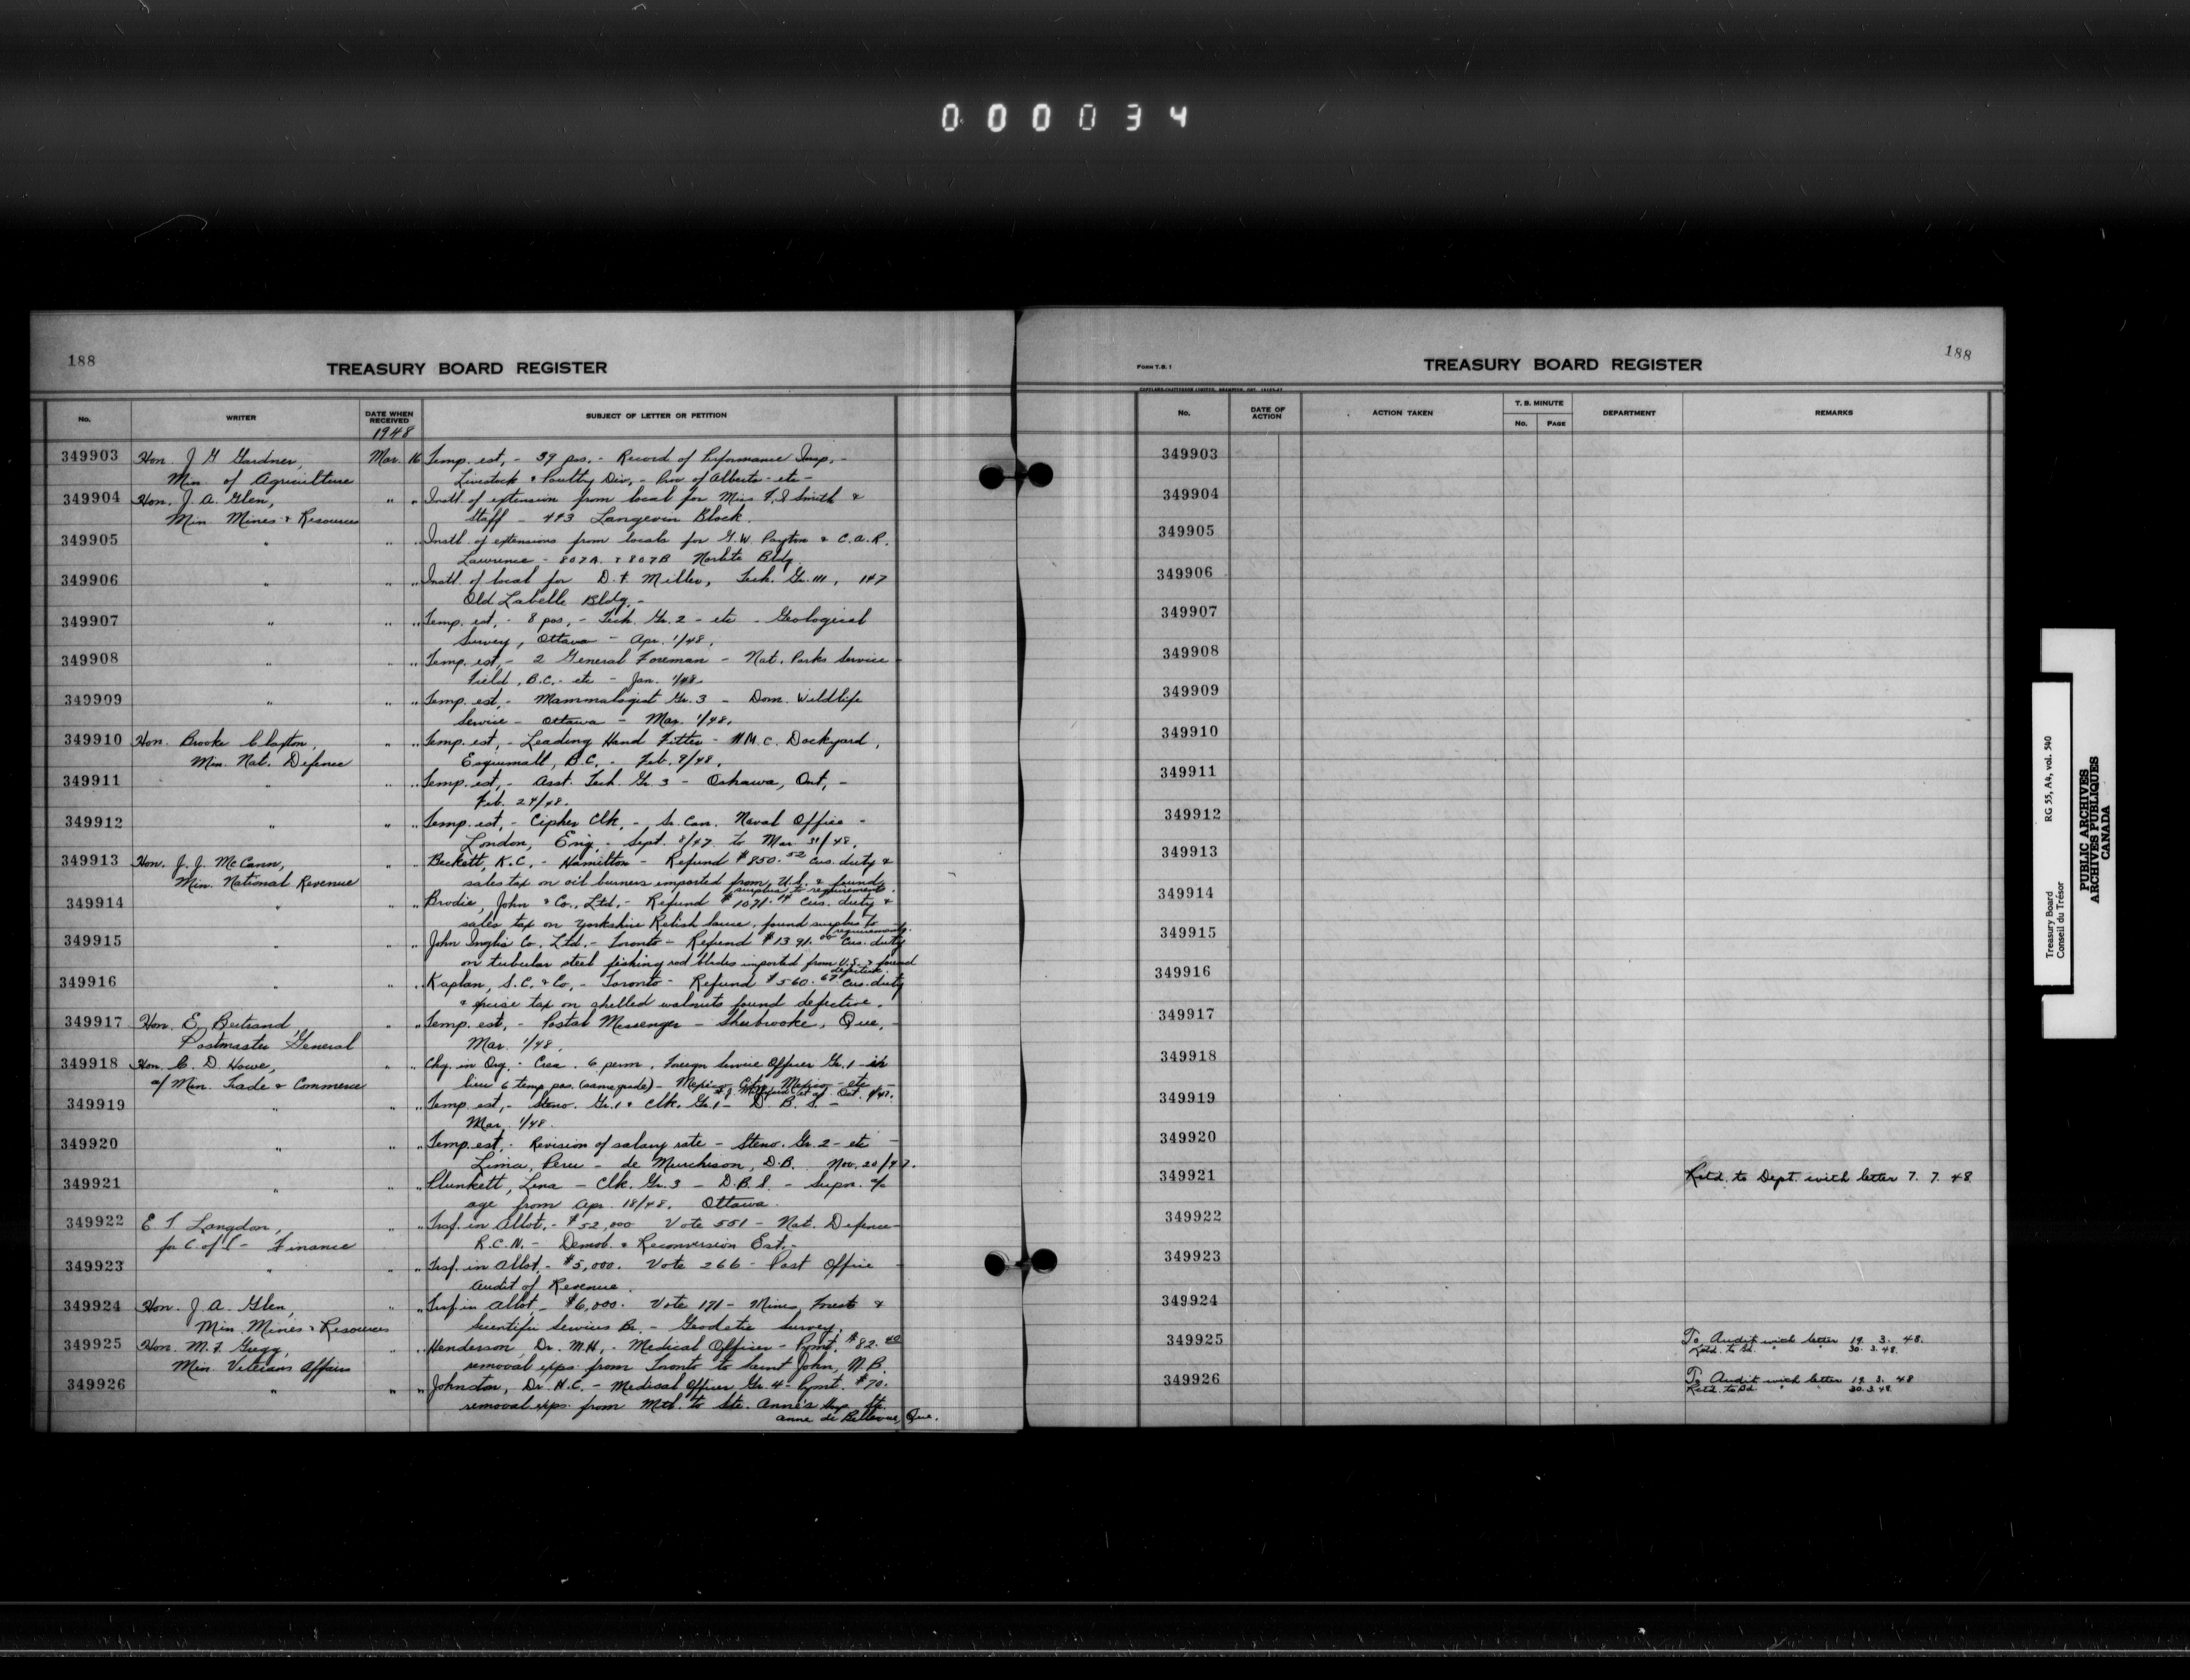 000034
188
TREASURY BOARD REGISTER
No.
WRITER
DATE WHEN RECEIVED
SUBJECT OF LETTER OR PETITION
1948
349903 Hon. J G Gardner, Mar. 16 Temp. est, - 39 pos, - Record of Performance Insp, -
Min. of Agriculture Livestock & Poultry Div, - Prov. of Alberta - etc -
349904 Hon. J. A. Glen, " " Instl. of extension from local for Miss F. I Smith &
Min Mines & Resources Staff - 443 Langevin Block.
349905 " " Instl. of extensions from locals for G. W. Payton & C. A. R.
Lawrence - 807A. & 807B Norlite Bldg.
349906 " " " Instl. of local for D. F. Miller, Tech. Gr. III, 147
Old Labelle Bldg. -
349907 " " " Temp. est, - 8 pos, - Tech. Gr. 2 - etc - Geological
Survey, Ottawa - Apr. 1/48.
349908 " " " Temp. est, - 2 General Foreman - Nat. Parks Service -
Field, B.C. - etc - Jan. 1/48.
349909 " " " Temp. est, - Mammalogist Gr. 3 - Dom. Wildlife
Service - Ottawa - Mar. 1/48.
349910 Hon. Brooke Claxton, " " Temp. est, - Leading Hand Fitter - H.M.C. Dockyard,
Min. Nat. Defence Esquimalt, B.C. - Feb. 9/48.
349911 " " " Temp. est, - Asst. Tech. Gr. 3 - Oshawa, Ont, -
Feb. 24/48.
349912 " " " Temp. est, - Cipher Clk, - Sr. Can. Naval Office -
London, Eng. - Sept. 8/47 to Mar 31/48.
349913 Hon. J. J. McCann, " Beckett, K.C. - Hamilton - Refund $850.52 cus. duty &
Min. National Revenue sales tax on oil burners imported from U.S. & found
surplus to requirements.
349914 " " " Brodie, John & Co., Ltd, - Refund $1071.14 Cus. duty &
sales tax on Yorkshire Relish Sauce, found surplus to
requirements.
349915 " " " John Inglis Co. Ltd. - Toronto - Refund $1391.00 Cus. duty
on tubular steel fishing rod blades imported from U.S. & found
defective.
349916 " " " Kaplan, S. C. & Co, - Toronto - Refund $560.67 Cus. duty
& excise tax on shelled walnuts found defective.
349917 Hon. E. Bertrand, " " Temp. est, - Postal Messenger - Sherbrooke, Que, -
Postmaster General Mar. 1/48.
349918 Hon. C. D. Howe, " " Chg. in Org. - Crea. 6 perm. Foreign Service Officer Gr. 1 - in
a/ Min. Trade & Commerce lieu 6 temp. pos. (same grade) - Mexico City, Mexico - etc -
349919 " " " Temp. est, - Steno. Gr. 1 & Clk. Gr. 1 - D. B. S. -
Mar. 1/48.
349920 " " " Temp. est, - Revision of salary rate - Steno. Gr. 2 - etc -
Lima, Peru - de Murchison, D.B. Nov. 20/47.
349921 " " Plunkett, Lena - Clk. Gr. 3 - D.B.S. - Supn. a/c
age from Apr. 18/48. Ottawa.
349922 E T. Langdon, " " Trsf. in Allot, - $52,000 Vote 551 - Nat. Defence -
for C. of T - Finance R.C.N. - Demob. & Reconversion Est. -
349923 " " " Trsf. in Allot, - $5,000. Vote 266 - Post Office
Audit of Revenue.
349924 Hon. J. A. Glen, " " Trsf. in Allot, - $6,000. Vote 171 - Mines, Forests &
Min. Mines & Resources Scientific Services Br. - Geodetic Survey.
349925 Hon. M. F. Gregg, " " Henderson, Dr. M.H, - Medical Officer - Pymt. $82.40
Min Veterans Affairs removal exps. from Toronto to Saint John, N.B.
349926 " " " Johnston, Dr. H.C. - Medical Officer Gr. 4 - Pymt. $70.
removal exps. from Mtl. to Ste. Anne's Hosp. Ste.
Anne de Bellevue, Que.
FORM T.B. 1
TREASURY BOARD REGISTER
188
No.
DATE OF ACTION
ACTION TAKEN
T. B. MINUTE
No.
PAGE
DEPARTMENT
REMARKS
349903
349904
349905
349906
349907
349908
349909
349910
349911
349912
349913
349914
349915
349916
349917
349918
349919
349920
349921 Retd. to Dept. with letter 7. 7. 48
349922
349923
349924
349925 To Audit with letter 19. 3. 48.
Retd. to Bd. " " 30. 3. 48.
349926 To Audit with letter 19. 3. 48
Retd. to Bd " " 30. 3. 48
Treasury Board RG 55, A4, vol. 540
Conseil du Trésor
PUBLIC ARCHIVES
ARCHIVES PUBLIQUES
CANADA